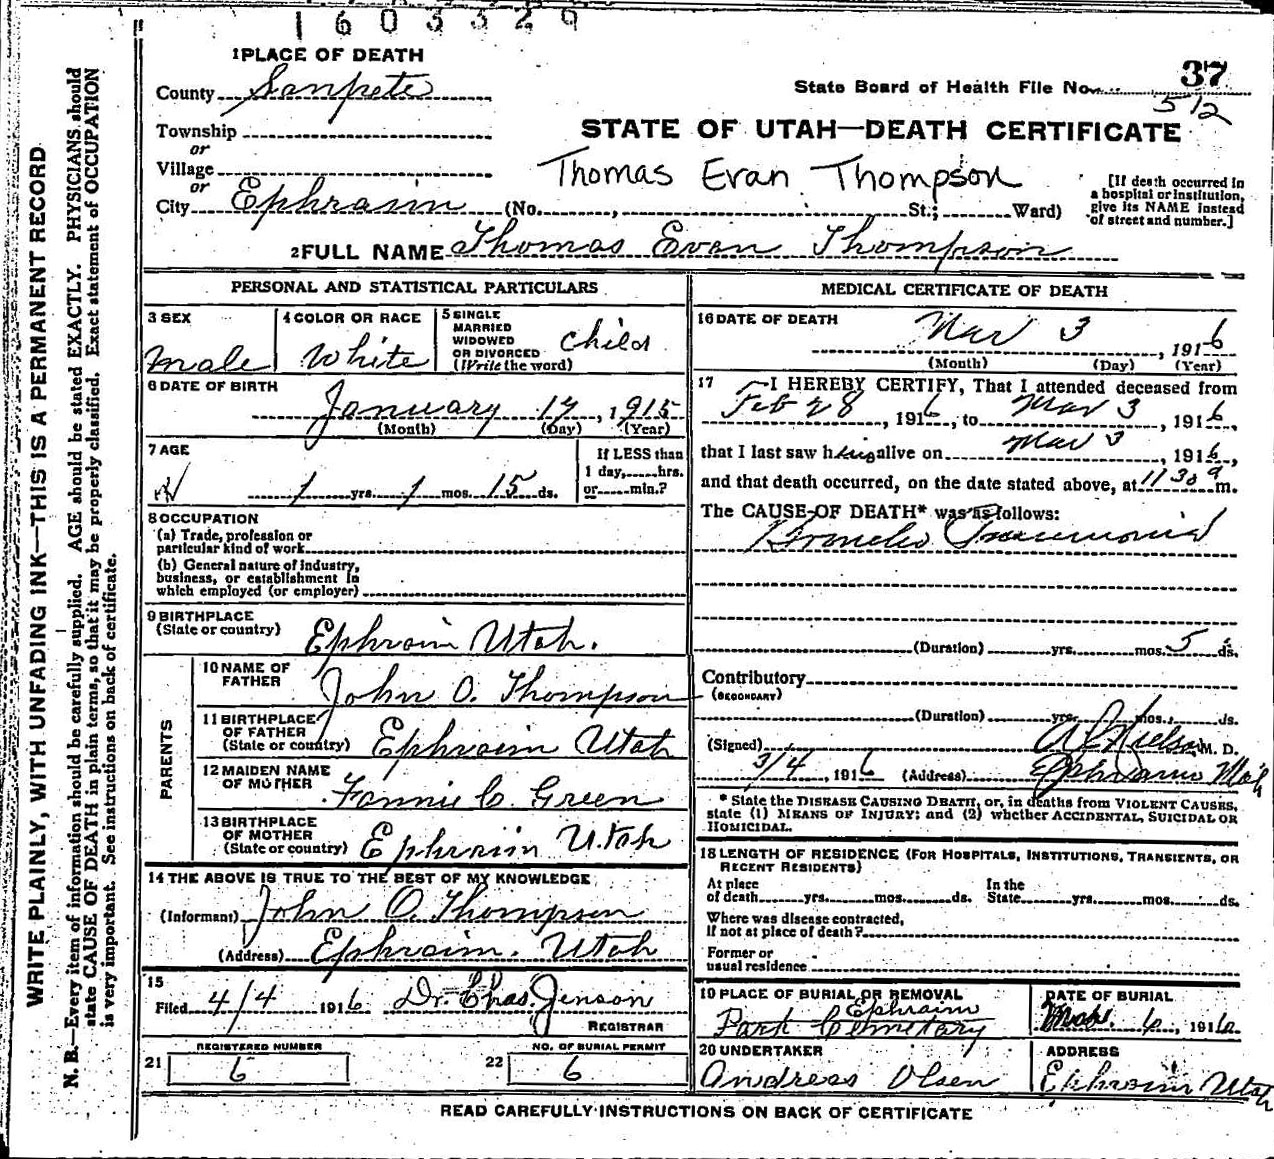 1603329
1 PLACE OF DEATH
37
County Sanpete
State Board of Health File No. 512
Township
STATE OF UTAH—DEATH CERTIFICATE
or
Village
Thomas Evan Thompson
or
City Ephraim (No. , St.; Ward)
[If death occurred in
a hospital or institution,
give its NAME instead
of street and number.]
2 FULL NAME Thomas Evan Thompson
PERSONAL AND STATISTICAL PARTICULARS
3 SEX
male
4 COLOR OR RACE
White
5 SINGLE
MARRIED
WIDOWED
OR DIVORCED
(Write the word)
child
6 DATE OF BIRTH
January 17, 1915
(Month) (Day) (Year)
7 AGE
1 yrs. 1 mos. 15 ds.
If LESS than
1 day, hrs.
or min.?
8 OCCUPATION
(a) Trade, profession or
particular kind of work
(b) General nature of industry,
business, or establishment in
which employed (or employer)
9 BIRTHPLACE
(State or country)
Ephraim Utah.
PARENTS
10 NAME OF
FATHER
John O. Thompson
11 BIRTHPLACE
OF FATHER
(State or country)
Ephraim Utah
12 MAIDEN NAME
OF MOTHER
Fannie C. Green
13 BIRTHPLACE
OF MOTHER
(State or country)
Ephraim Utah
14 THE ABOVE IS TRUE TO THE BEST OF MY KNOWLEDGE
(Informant) John O. Thompson
(Address) Ephraim. Utah
15
Filed 4/4 1916 Dr. Chas. Jenson
REGISTRAR
REGISTERED NUMBER
21 6
NO. OF BURIAL PERMIT
22 6
MEDICAL CERTIFICATE OF DEATH
16 DATE OF DEATH
Mar 3, 1916
(Month) (Day) (Year)
17 I HEREBY CERTIFY, That I attended deceased from
Feb 28, 1916, to Mar 3, 1916,
that I last saw him alive on Mar 3, 1916,
and that death occurred, on the date stated above, at 11 30 a m.
The CAUSE OF DEATH* was as follows:
Broncho Pneumonia
(Duration) yrs. mos. 5 ds.
Contributory
(SECONDARY)
(Duration) yrs. mos. ds.
(Signed) Nielson M. D.
3/4, 1916 (Address) Ephraim
* State the DISEASE CAUSING DEATH, or, in deaths from VIOLENT CAUSES,
state (1) MEANS OF INJURY; and (2) whether ACCIDENTAL, SUICIDAL OR
HOMICIDAL.
18 LENGTH OF RESIDENCE (FOR HOSPITALS, INSTITUTIONS, TRANSIENTS, OR
RECENT RESIDENTS)
At place
of death yrs. mos. ds.
In the
State yrs. mos. ds.
Where was disease contracted,
if not at place of death?
Former or
usual residence
19 PLACE OF BURIAL OR REMOVAL
Ephraim
Park Cemetary
DATE OF BURIAL
Mar. 6, 1916
20 UNDERTAKER
Andreas Olsen
ADDRESS
Ephraim Utah
READ CAREFULLY INSTRUCTIONS ON BACK OF CERTIFICATE
WRITE PLAINLY, WITH UNFADING INK—THIS IS A PERMANENT RECORD
N. B.—Every item of information should be carefully supplied. AGE should be stated EXACTLY. PHYSICIANS should
state CAUSE OF DEATH in plain terms, so that it may be properly classified. Exact statement of OCCUPATION
is very important. See instructions on back of certificate.